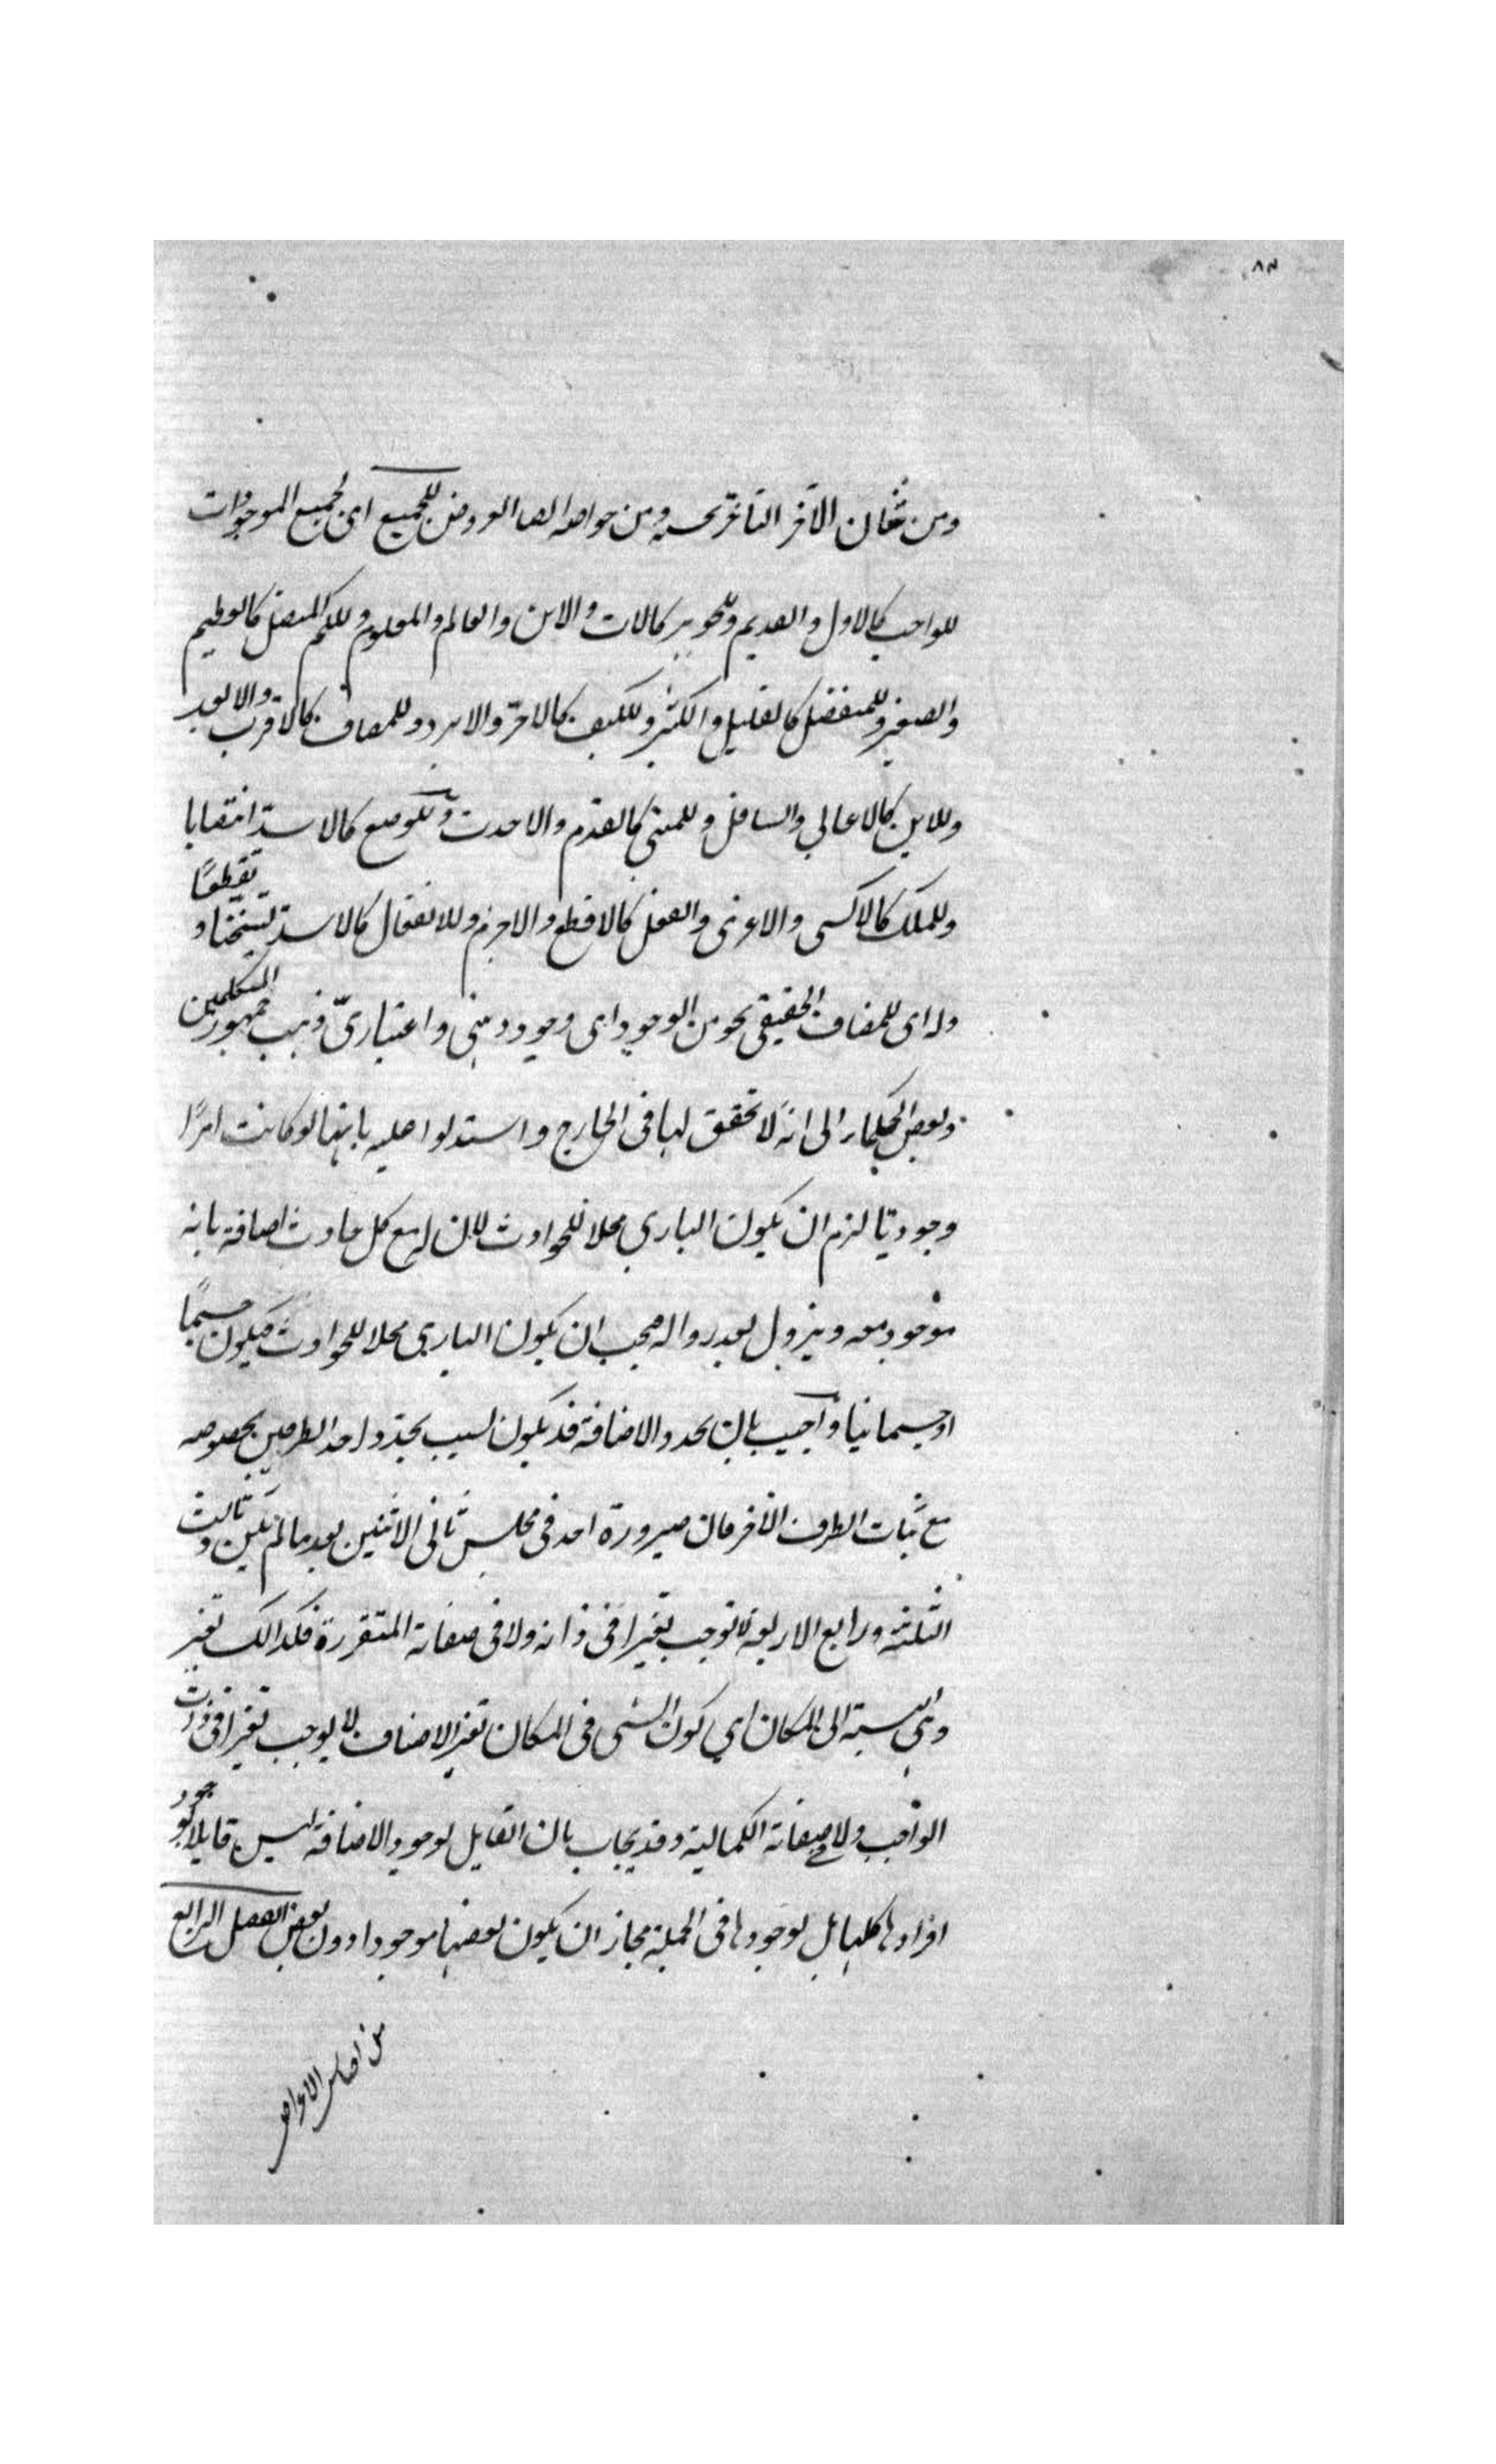 ومن شان الآخر التاخر عنه ومن خواصه ايضا العروض للجميع اى لجميع الموجودات
للواجب كالاول والقديم وللجوهر كالاب والابن والعالم والمعلوم وللكم المتصل كالعظيم
والصغير وللمنفصل كالقليل والكثير وللكيف كالاحرّ والابرد وللمضاف كالاقرب والابعد
وللاين كالاعالي والسافل وللمتى كالاقدم والاحدث وللوضع كالاشد انتصابا
وللملك كالاكسى والاعرى والفعل كالاقطع والاجزم وللانفعال كالاشد تسخنا و تقطعًا
وله اى للمضاف الحقيقى نحو من الوجود اى وجود ذهنى واعتبارىّ ذهب جمهور المتكلمين
وبعض الحكماء الى انه لا تحقق لها فى الخارج واستدلوا عليه بانها لو كانت امرًا
وجوديّا لزم ان يكون الباري محلا للحوادث لان له مع كل حادث اضافة بانه
موجود معه ويزول بعد زواله فيجب ان يكون البارى محلا للحوادث فيكون جسمًا
او جسمانيا واجيب بان تجدد الاضافة قد يكون لسبب تجدّد احد الطرفين بخصوصه
مع ثبات الطرف الآخر فان صيرورة احد فى مجلس ثانى الاثنين بعد ما لم يكن وثالث
الثلثة ورابع الاربعة لا توجب تغيرا فى ذاته ولا فى صفاته المتقررة فكذالك تغير
وهى نسبة الى المكان اي كون الشى فى المكان تغير الاضاف لا يوجب تغيرا فى ذات
الواجب ولا فى صفاته الكمالية وقد يجاب بان القايل بوجود الاضافة ليس قايلا بوجود
افرادها كلها بل بوجودها فى الجملة فجاز ان يكون بعضها موجودا دون بعض الفصل الرابع
من